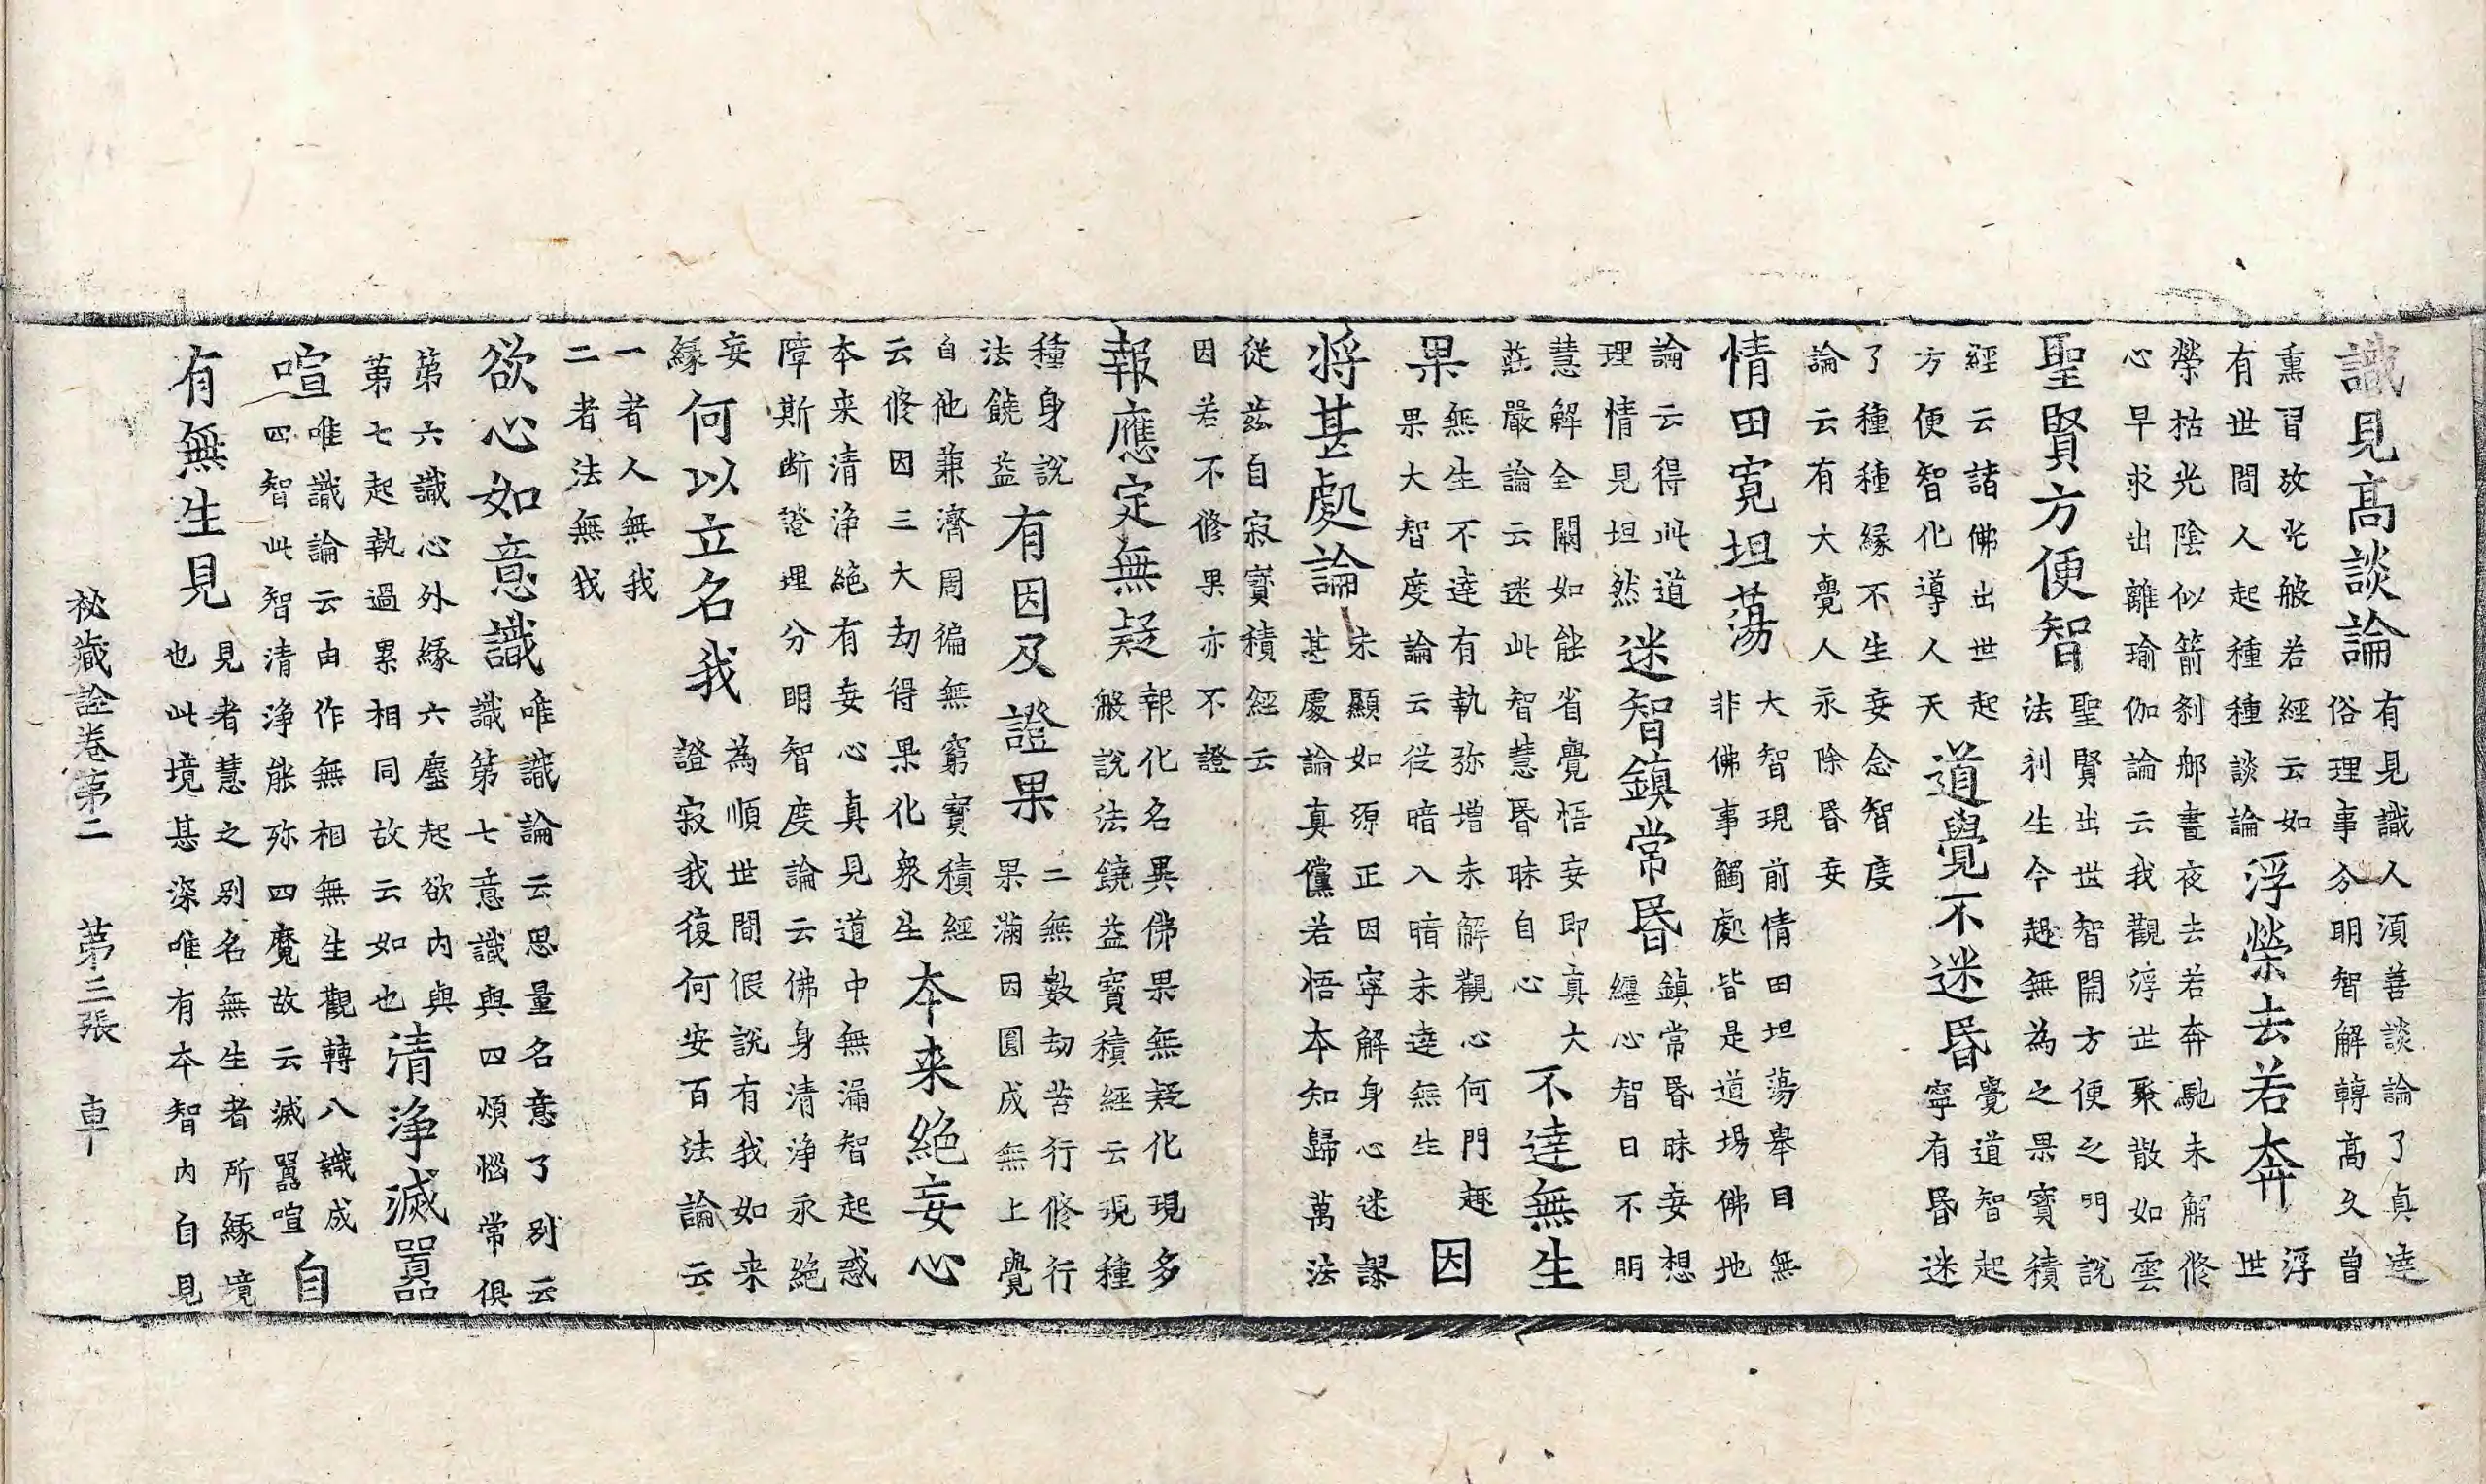 識見高談論有見識人須善談論了真達
俗理事分明智解轉高久曾
熏習故光般若經云如
有世間人起種種談論浮榮去若奔浮
世
榮枯光陰似箭剎那晝夜去若奔馳未解修
心早求出離瑜伽論云我觀浮世聚散如雲
聖賢方便智聖賢出世智開方便之門說
法利生今趣無為之果寶積
經云諸佛出世起
方便智化導人天道覺不迷昏覺道智起
寧有昏迷
了種種緣不生妄念智度
論云有大覺人永除昏妄
情田寬坦蕩大智現前情田坦蕩舉目無
非佛事觸處皆是道場佛地
論云得此道
理情見坦然迷智鎮常昏鎮常昏昧妄想
纏心智日不明
慧解全闕如能省覺悟妄即真大
莊嚴論云迷此智慧昏昧自心不達無生
果無生不達有執弥增未解觀心何門趣
果大智度論云從暗入暗未達無生因
將甚處論未顯如源正因寧解身心迷謬
甚處論真儻若悟本知歸萬法
從茲自寂寶積經云
因若不修果亦不證
報應定無疑報化名異佛果無疑化現多
般說法饒益寶積經云現種
種身說
法饒益有因及證果二無數劫苦行修行
果滿因圓成無上覺
自他兼濟周徧無窮寶積經
云修因三大劫得果化衆生本来絕妄心
本来清淨絕有妄心真見道中無漏智起惑
障斯断證理分明智度論云佛身清淨永絕
妄
緣何以立名我為順世間假說有我如来
證寂我復何安百法論云
一者人無我
二者法無我
欲心如意識唯識論云思量名意了别云
識第七意識與四煩惱常俱
第六識心外緣六塵起欲内與
第七起執過累相同故云如也清淨滅囂
喧唯識論云由作無相無生觀轉八識成
四智此智清淨能弥四魔故云滅囂喧自
有無生見見者慧之别名無生者所緣境
也此境甚深唯有本智内自見
秘藏詮卷第二 第三張